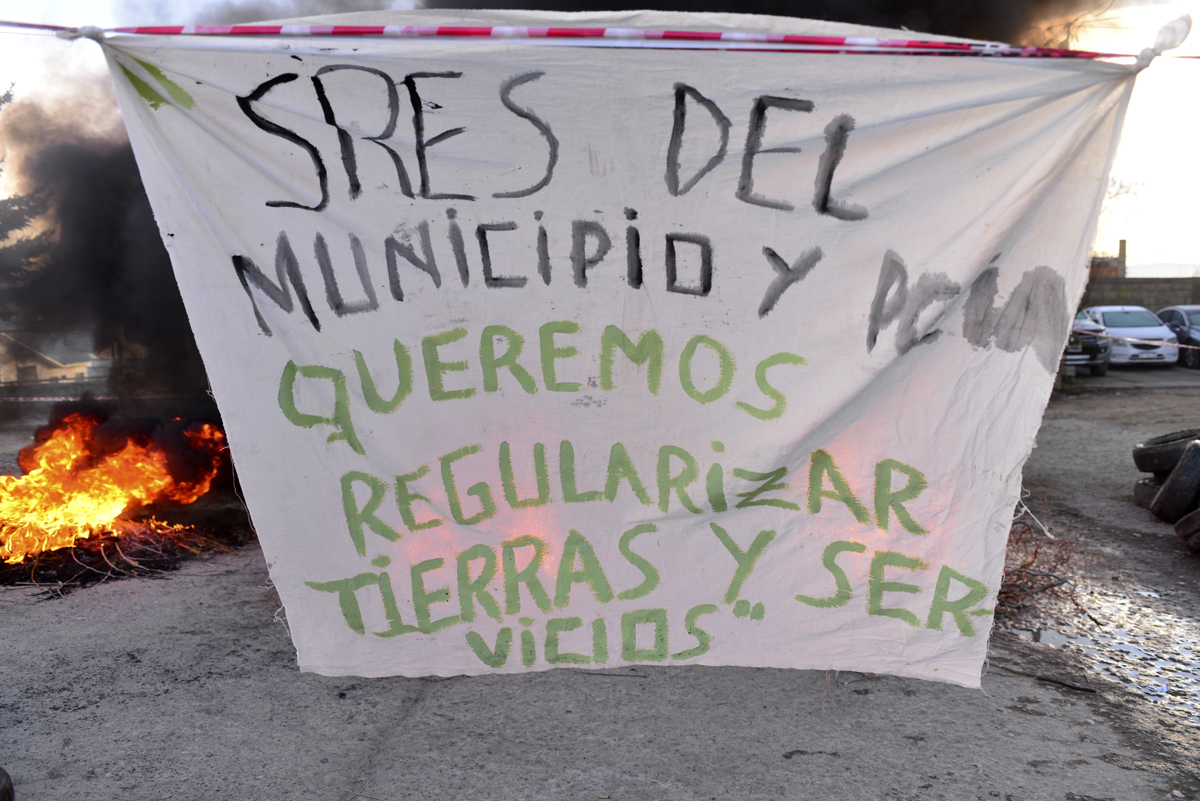 SRES DEL
MUNICIPIO Y PCIA
QUEREMOS
REGULARIZAR
TIERRAS Y SER-
VICIOS"